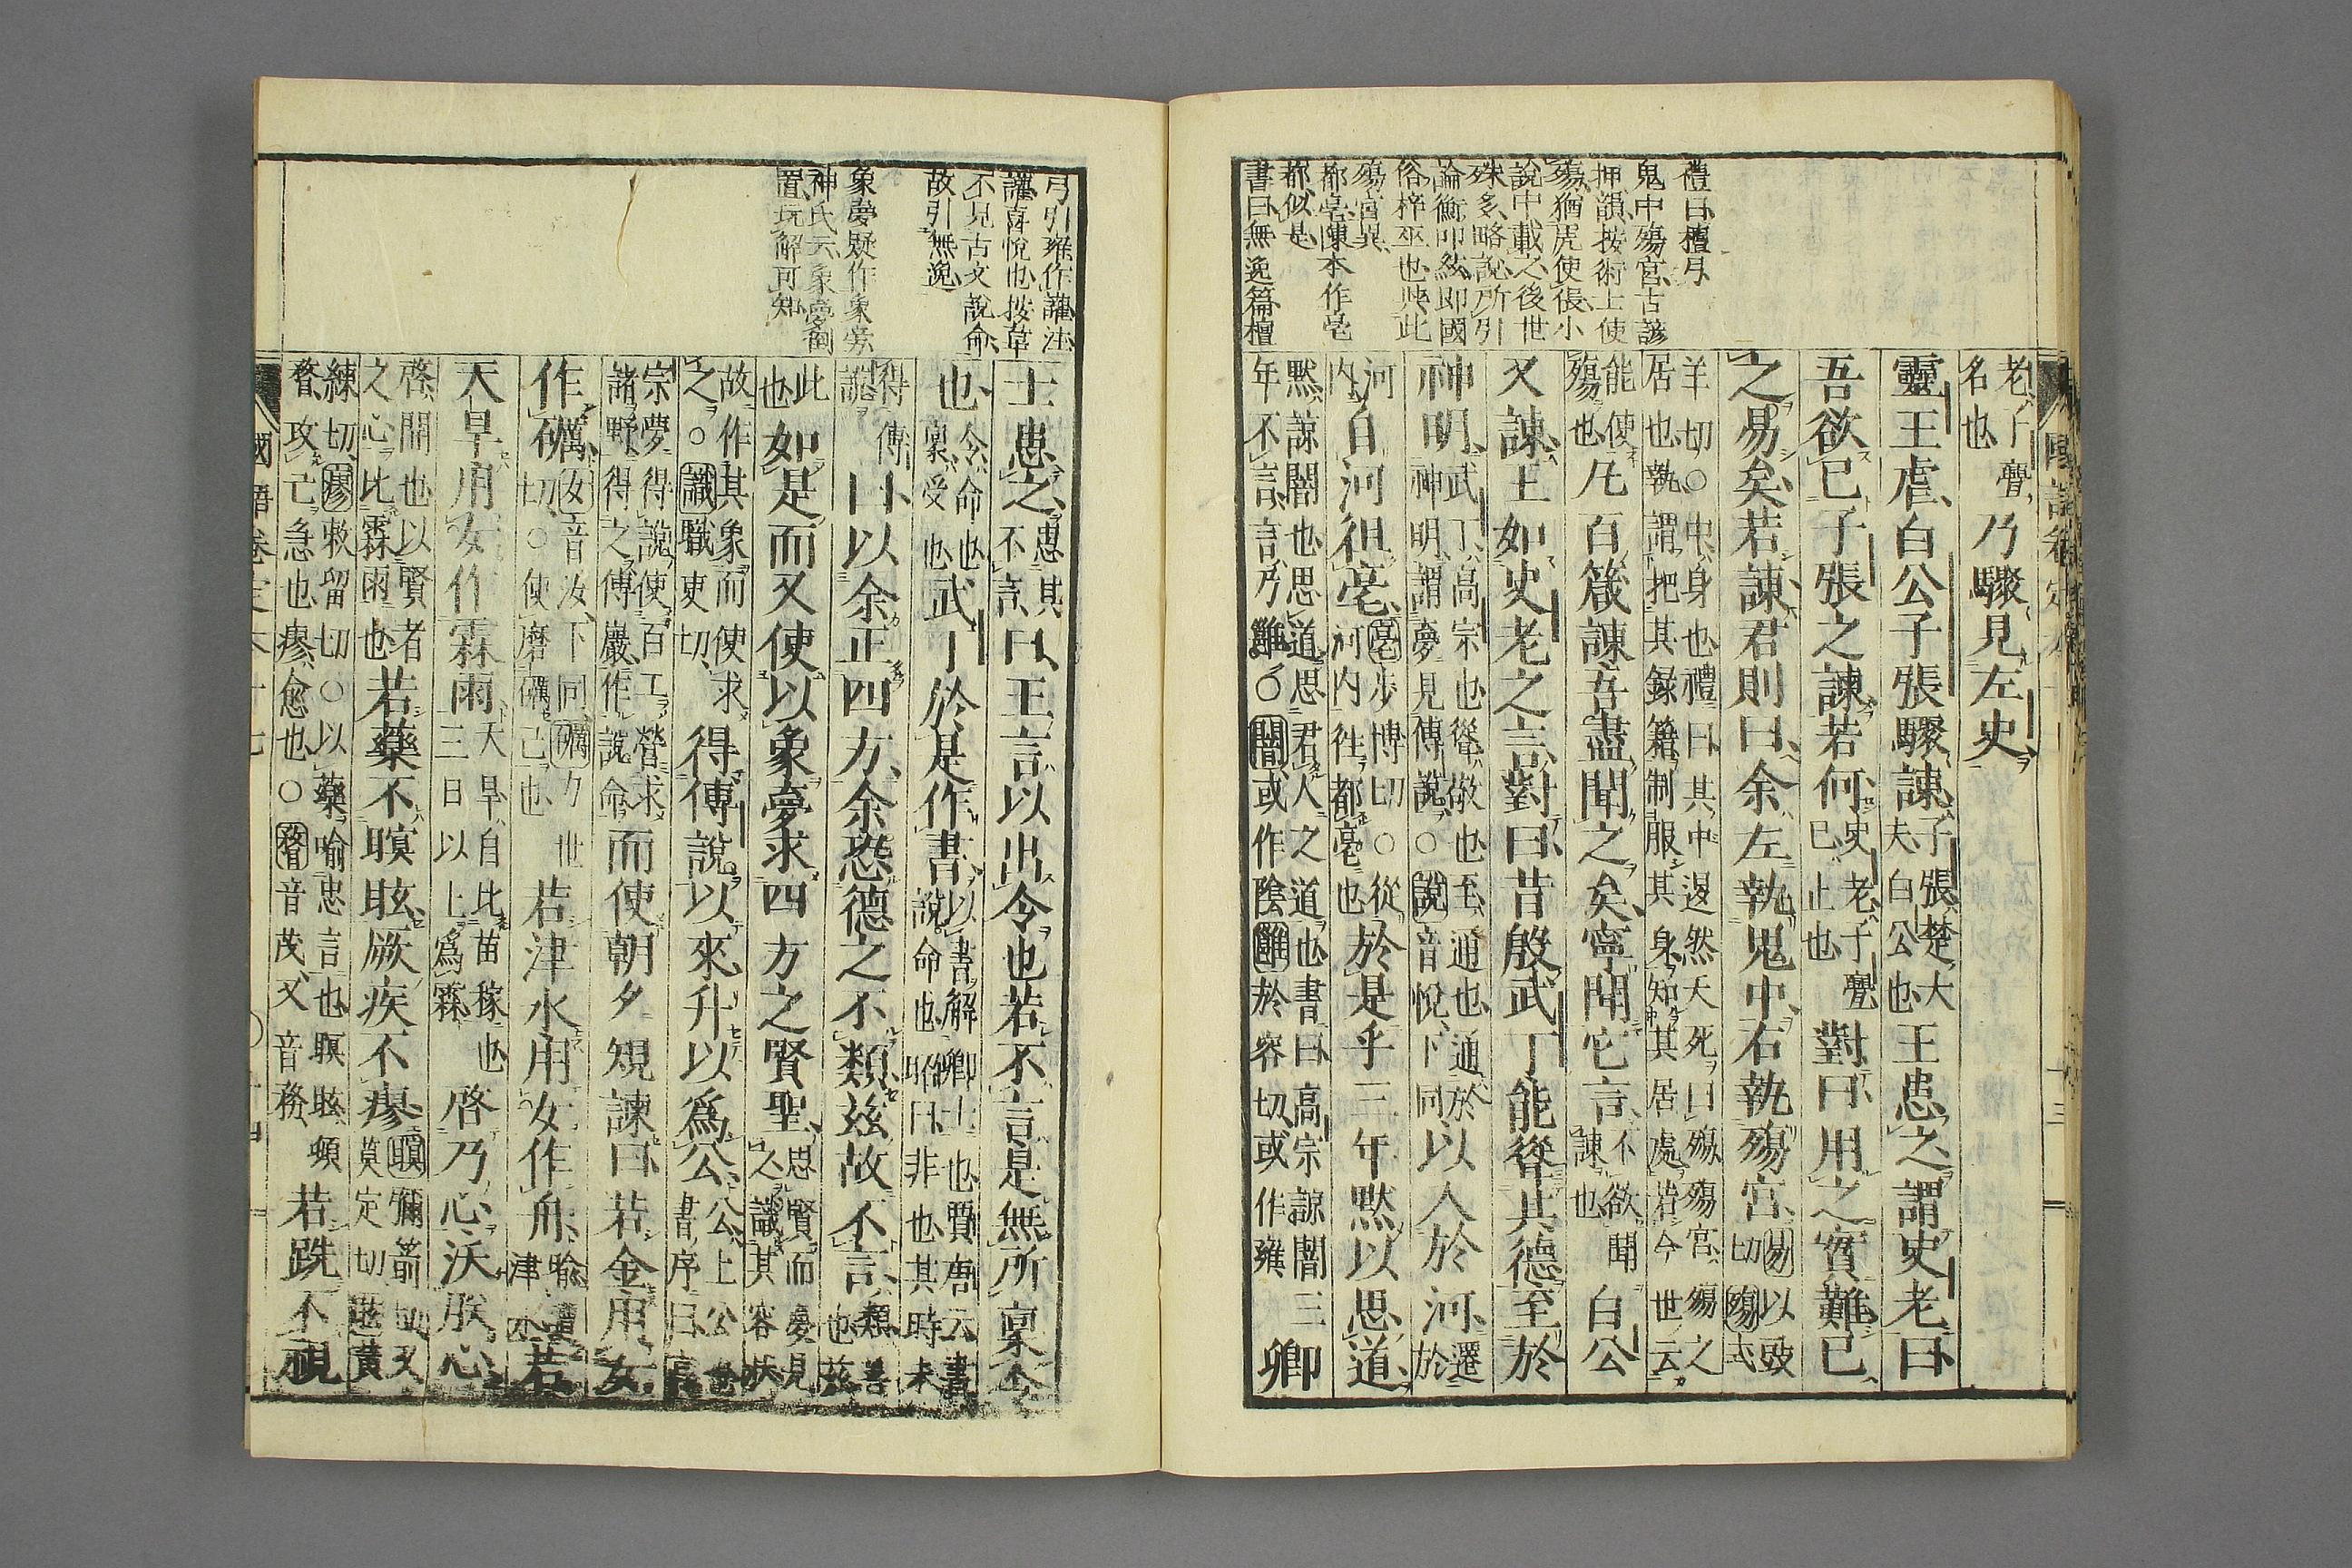 禮曰檀弓
鬼中殤宮古諺
押韻按術士使
殤猶虎使倀小
說中載之後世
殊多略說所引
論衡叩絃即國
俗梓巫也與此
殤宮異
都亳陳本作亳
都似是
書曰無逸篇檀
老子亹乃驟見左史
名也
靈王虐白公子張驟諫子張楚大夫白公也王患之謂史老曰
吾欲已子張之諫若何史老子亹已止也對曰用之實難已
之易矣若諫君則曰余左執鬼中右執殤宮易以豉切殤式
羊切○中身也禮曰其中退然夭死曰殤殤宮殤之
居也執謂把其錄籍制服其身知其居處若今世云
能使殤也凡百箴諫吾盡聞之矣寧聞它言不欲聞諫也白公
又諫王如史老之言對曰昔殷武丁能聳其德至於
神明武丁高宗也聳敬也至通也通於神明謂夢見傳說○說音悅下同以入於河遷於
河內自河徂亳亳步博切○從河內往都亳也於是乎三年默以思道
默諒闇也思道思君人之道也書曰高宗諒闇三
年不言言乃雝○闇或作陰雝於容切或作雍卿
弓引雍作讙注
讙喜悅也按韋
不見古文說命
故引無逸
象夢疑作象旁
神氏云象夢劃
置玩解可知
士患之患其不言曰王言以出令也若不言是無所稟令
也令命也稟受也武丁於是作書以書解卿士也賈唐云書說命也昭曰非也其時未
得傅說曰以余正四方余恐德之不類茲故不言類善也茲
此也如是而又使以象夢求四方之賢聖思賢而夢見之識其容狀
故作其象而使求之○識職吏切得傅說以來升以爲公公上公也書序曰高
宗夢得說使百工營求諸野得之傅巖作說命而使朝夕規諫曰若金用女
作礪女音汝下同礪力世切○使磨礪己也若津水用女作舟喻遭津水若
天旱用女作霖雨天旱自比苗稼也三日以上爲霖啓乃心沃朕心
啓開也以賢者之心比霖雨也若藥不瞑眩厥疾不瘳瞑彌箭切又莫定切眩黃
練切瘳敕留切○以藥喻忠言也瞑眩頓
瞀攻己急也瘳愈也○瞀音茂又音務若跣不視